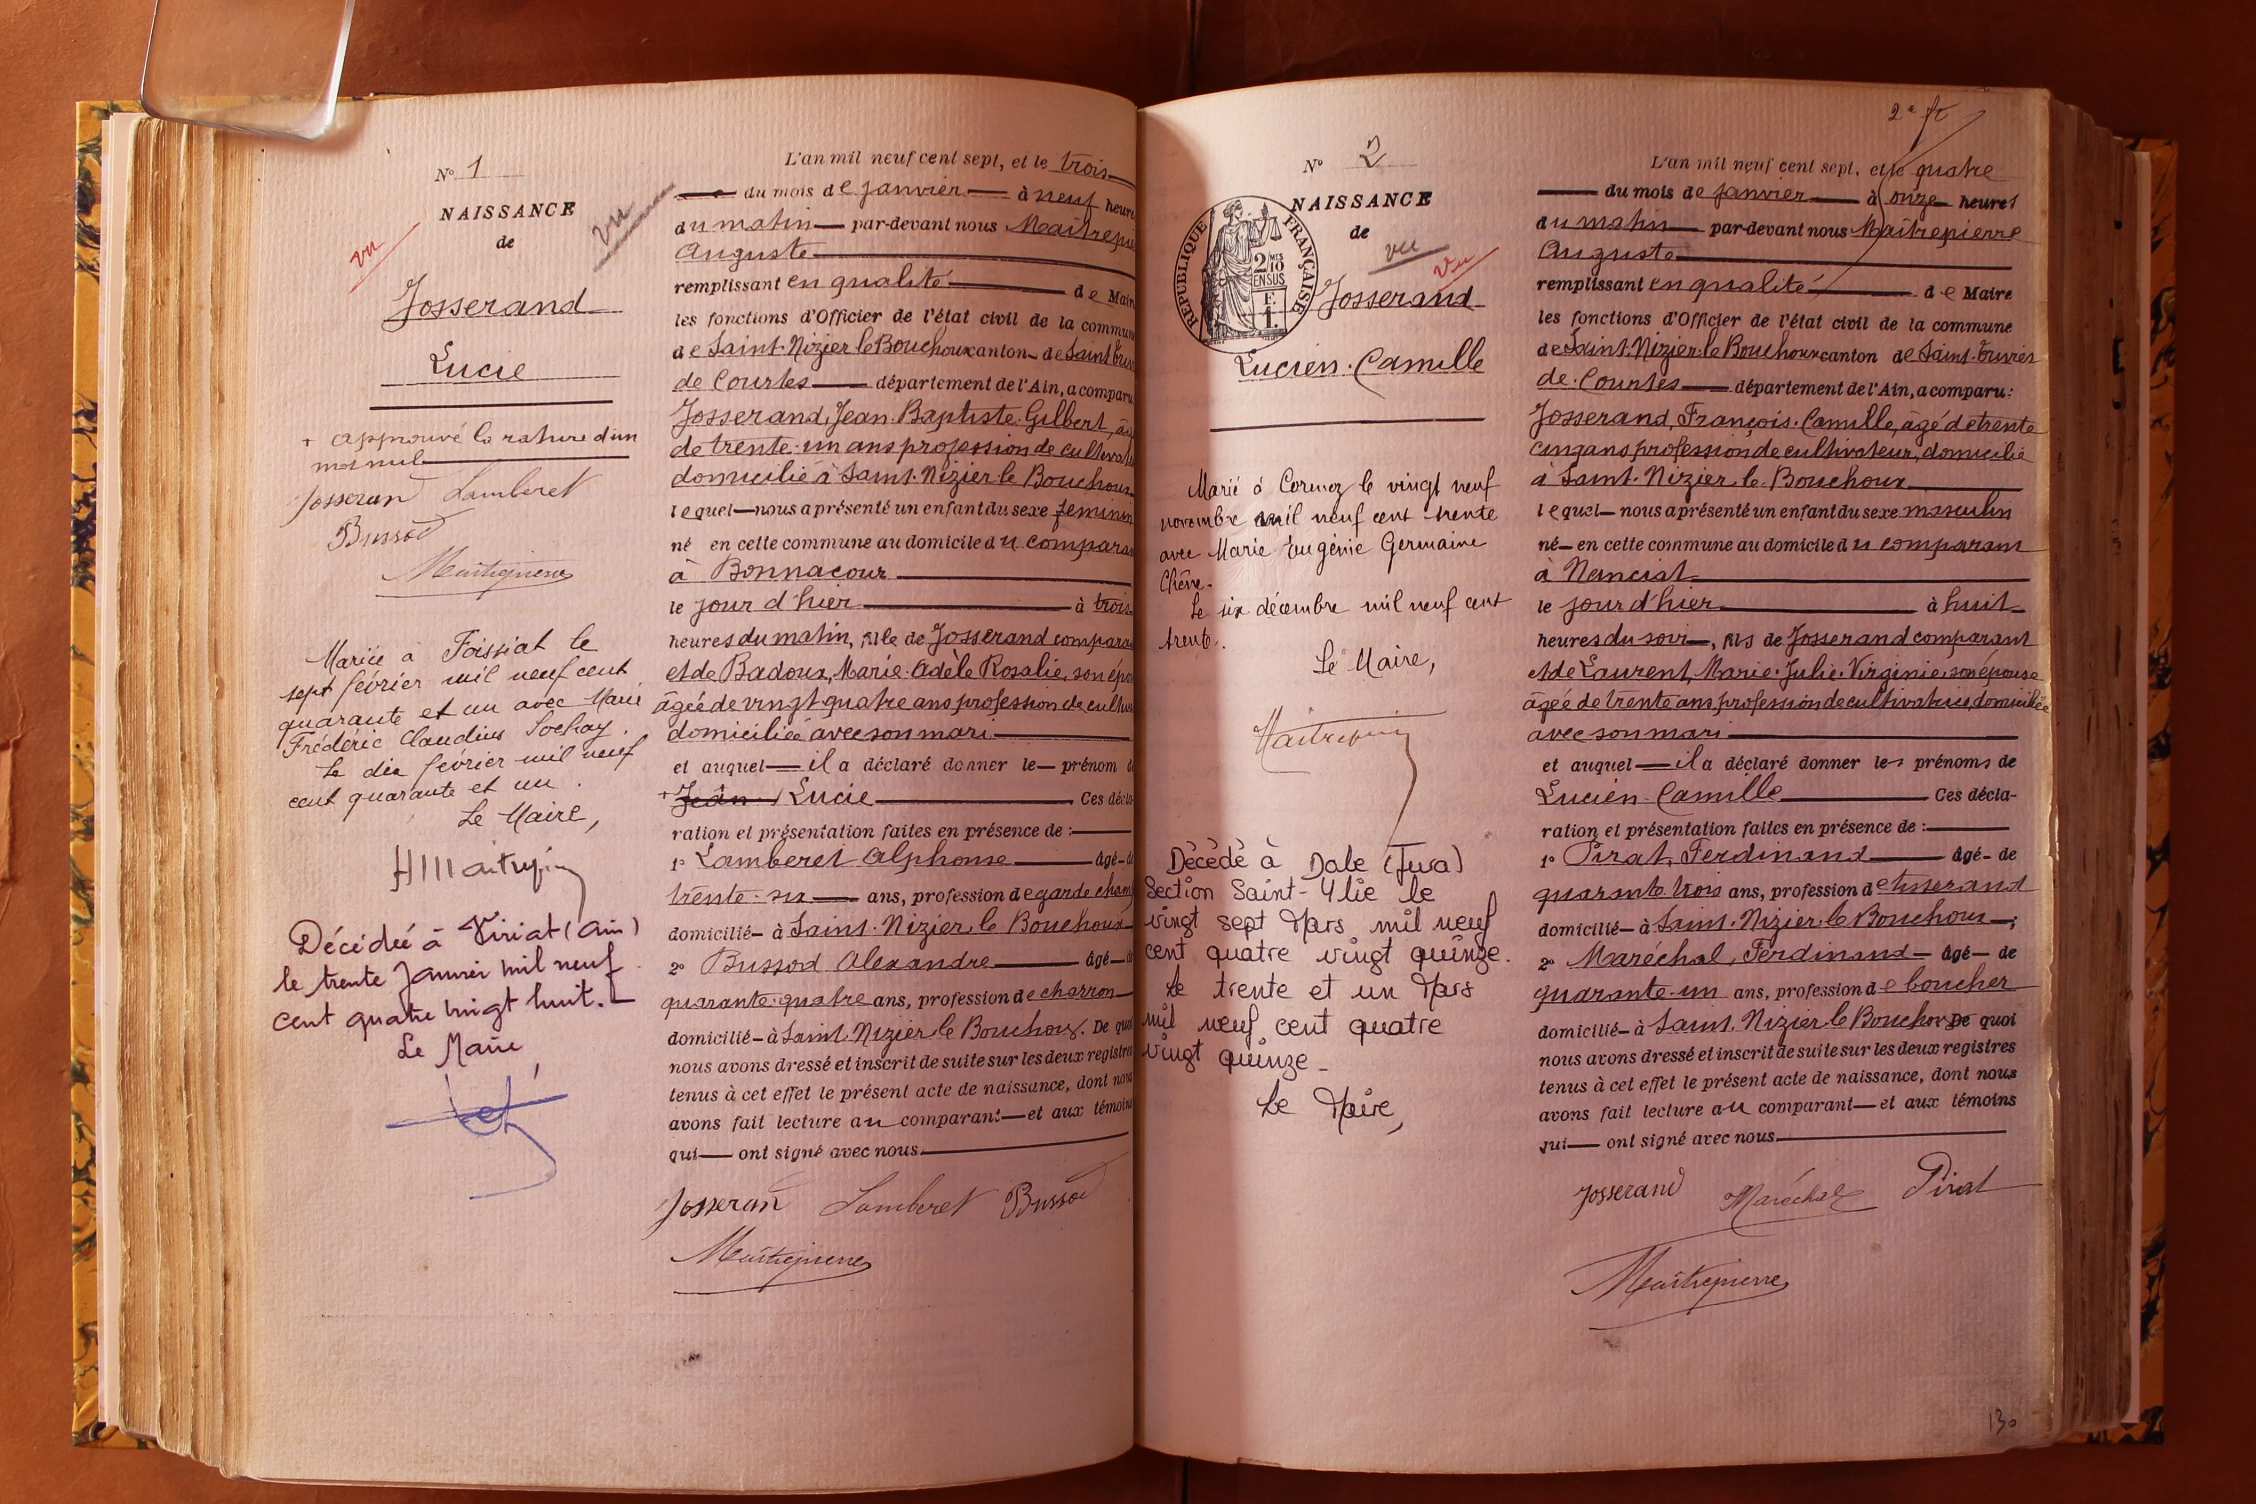 N° 1
NAISSANCE
de
vu
vu
Josserand
Lucie
+ approuvé la rature d'un
mot nul
Josseran Lamberet
Bussod
Maitrepierre
Mariée à Foissiat le
sept février mil neuf cent
quarante et un avec Marie
Frédéric Claudius Sochay.
Le dix février mil neuf
cent quarante et un.
Le Maire,
Décédée à Viriat (Ain)
le trente Janvier mil neuf
cent quatre vingt huit.
Le Maire,
L'an mil neuf cent sept, et le trois
du mois de janvier à neuf heures
du matin par-devant nous Maitrepi
Auguste
remplissant en qualité de Maire
les fonctions d'Officier de l'état civil de la commune
de Saint-Nizier le Bouchoux canton de Saint Triv
de Courtes département de l'Ain, a comparu
Josserand, Jean-Baptiste-Gilbert, âg
de trente-un ans profession de cultivat
domicilié à Saint-Nizier le Bouchoux
lequel nous a présenté un enfant du sexe féminin
né en cette commune au domicile du comparan
à Bonnacour
le jour d'hier à trois
heures du matin, fille de Josserand compara
et de Badoux, Marie-Adèle Rosalie, son épou
âgée de vingt-quatre ans profession de cultiv
domiciliée avec son mari
et auquel il a déclaré donner le prénom d
+ Jean Lucie Ces décla-
ration et présentation faites en présence de :
1° Lamberet Alphonse âgé de
trente-six ans, profession de garde cham
domicilié à Saint-Nizier le Bouchoux
2° Bussod Alexandre âgé d
quarante-quatre ans, profession de charron
domicilié à Saint-Nizier le Bouchoux. De quoi
nous avons dressé et inscrit de suite sur les deux registres
tenus à cet effet le présent acte de naissance, dont nous
avons fait lecture au comparant et aux témoins
qui ont signé avec nous
Josseran Lamberet Bussod
Maitrepierre
2e ft
N° 2
NAISSANCE
de
vu
vu
RÉPUBLIQUE FRANÇAISE
2 MES
10
EN SUS
F.
1.
Josserand
Lucien-Camille
Marié à Cormoz le vingt neuf
novembre mil neuf cent trente
avec Marie Eugénie Germaine
Chêne.
Le six décembre mil neuf cent
trente.
Le Maire,
Maitrepierre
Décédé à Dole (Jura)
Section Saint-Ylie le
vingt sept Mars mil neuf
cent quatre vingt quinze.
Le trente et un Mars
mil neuf cent quatre
vingt quinze
Le Maire,
L'an mil neuf cent sept, et le quatre
du mois de janvier à onze heures
du matin par-devant nous Maitrepierre
Auguste
remplissant en qualité de Maire
les fonctions d'Officier de l'état civil de la commune
de Saint-Nizier-le Bouchoux canton de Saint-Trivier
de Courtes département de l'Ain, a comparu :
Josserand, François-Camille, âgé de trente
cinq ans profession de cultivateur, domicilié
à Saint-Nizier-le-Bouchoux
lequel nous a présenté un enfant du sexe masculin
né en cette commune au domicile du comparant
à Nanciat
le jour d'hier à huit
heures du soir, fils de Josserand comparant
et de Laurent, Marie-Julie-Virginie, son épouse
âgée de trente ans, profession de cultivatrice, domiciliée
avec son mari
et auquel il a déclaré donner les prénoms de
Lucien-Camille Ces décla-
ration et présentation faites en présence de :
1° Pirat, Ferdinand âgé de
quarante-trois ans, profession de tisserand
domicilié à Saint-Nizier-le Bouchoux ;
2° Maréchal, Ferdinand âgé de
quarante-un ans, profession de boucher
domicilié à Saint-Nizier-le Bouchoux De quoi
nous avons dressé et inscrit de suite sur les deux registres
tenus à cet effet le présent acte de naissance, dont nous
avons fait lecture au comparant et aux témoins
qui ont signé avec nous
Josserand Maréchal Pirat
Maitrepierre
130